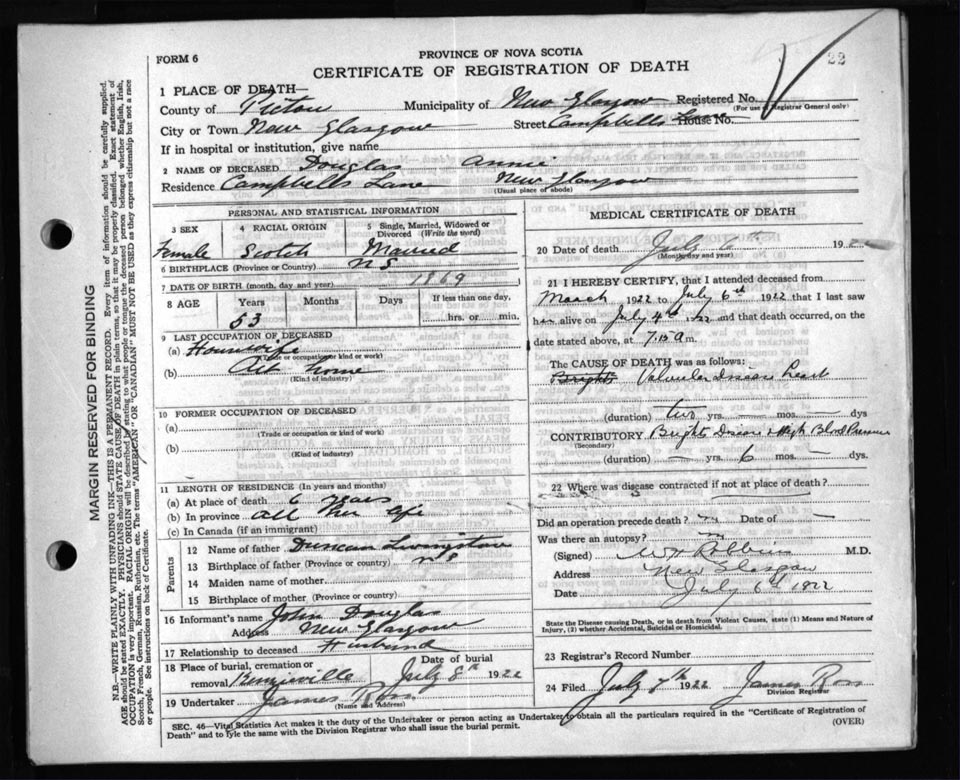 FORM 6
PROVINCE OF NOVA SCOTIA
CERTIFICATE OF REGISTRATION OF DEATH
22
1 PLACE OF DEATH—
County of Pictou Municipality of New Glasgow Registered No.
(For use of Registrar General only)
City or Town New Glasgow Street Campbells Lane House No.
If in hospital or institution, give name
2 NAME OF DECEASED Douglas Annie
Residence Campbells Lane New Glasgow
(Usual place of abode)
PERSONAL AND STATISTICAL INFORMATION
3 SEX 4 RACIAL ORIGIN 5 Single, Married, Widowed or Divorced (Write the word)
Female Scotch Married
6 BIRTHPLACE (Province or Country) N S
7 DATE OF BIRTH (month, day and year) 1869
8 AGE Years Months Days If less than one day,
53 hrs. or min.
9 LAST OCCUPATION OF DECEASED
(a) Housewife
(Trade or occupation or kind of work)
(b) At home
(Kind of industry)
10 FORMER OCCUPATION OF DECEASED
(a)
(Trade or occupation or kind of work)
(b)
(Kind of industry)
11 LENGTH OF RESIDENCE (In years and months)
(a) At place of death 6 years
(b) In province all her life
(c) In Canada (if an immigrant)
Parents
12 Name of father Duncan Livingston
13 Birthplace of father (Province or country) N S
14 Maiden name of mother
15 Birthplace of mother (Province or country)
16 Informant's name John Douglas
Address New Glasgow
17 Relationship to deceased Husband
18 Place of burial, cremation or removal Kenzieville Date of burial July 8th 1922
19 Undertaker James Ross
(Name and Address)
MEDICAL CERTIFICATE OF DEATH
20 Date of death July 6th 192
(Month, day and year)
21 I HEREBY CERTIFY, that I attended deceased from
March 1922 to July 6th 1922 that I last saw
her alive on July 4th 1922 and that death occurred, on
date stated above, at 7.15 a m.
The CAUSE OF DEATH was as follows:
Brights Valvular disease heart
(duration) two yrs. mos. — dys
CONTRIBUTORY Brights Disease & High Blood Pressure
(Secondary)
(duration) yrs. 6 mos. — dys.
22 Where was disease contracted if not at place of death?
Did an operation precede death? no Date of
Was there an autopsy? no
(Signed) W H Robbins M.D.
Address New Glasgow
Date July 6th 1922
State the Disease causing Death, or in death from Violent Causes, state (1) Means and Nature of
Injury, (2) whether Accidental, Suicidal or Homicidal.
23 Registrar's Record Number
24 Filed July 7th 1922 James Ross
Division Registrar
SEC. 46—Vital Statistics Act makes it the duty of the Undertaker or person acting as Undertaker to obtain all the particulars required in the "Certificate of Registration of
Death" and to fyle the same with the Division Registrar who shall issue the burial permit.
(OVER)
MARGIN RESERVED FOR BINDING
N.B.—WRITE PLAINLY WITH UNFADING INK—THIS IS A PERMANENT RECORD. Every item of information should be carefully supplied.
AGE should be stated EXACTLY. PHYSICIANS should STATE CAUSE OF DEATH in plain terms, so that it may be properly classified. Exact statement of
OCCUPATION is very important. RACIAL ORIGIN will be described by stating to what people or tongue the deceased person belonged whether English, Irish,
Scotch, French, German, Russian, Ruthenian, etc. The terms "AMERICAN" OR "CANADIAN" MUST NOT BE USED as they express citizenship but not a race
or people. See instructions on back of Certificate.